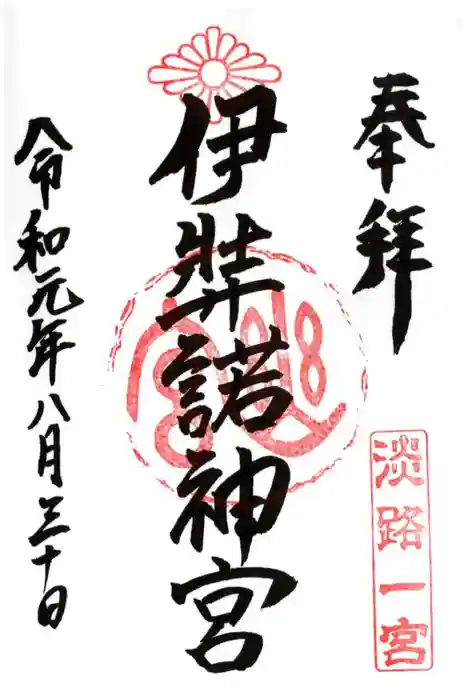 奉拝
淡路一宮
伊弉諾神宮
令和元年八月三十日